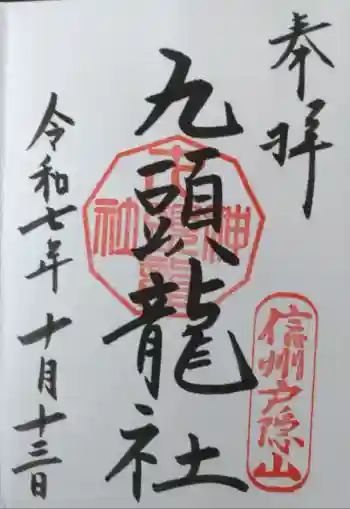 奉拝
信州戸隠山
九頭龍社
令和七年十月十三日